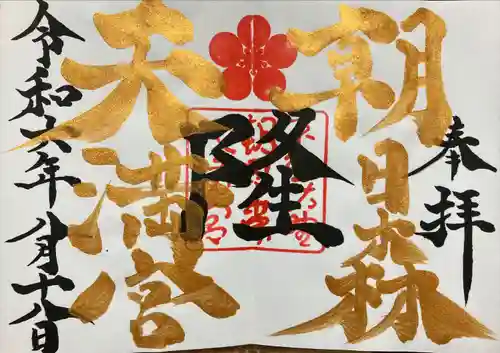 奉拝
朝日森
隆
天満宮
令和六年八月十八日